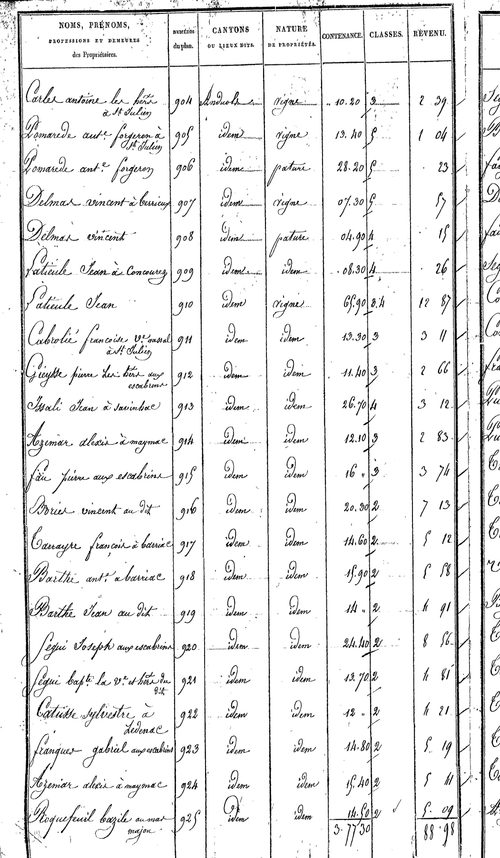 NOMS, PRÉNOMS, PROFESSIONS ET DEMEURES des Propriétaires. NUMÉROS du plan. CANTONS OU LIEUX DITS. NATURE DE PROPRIÉTÉS. CONTENANCE. CLASSES. REVENU.
Carles antoine les hers à St Julien 904 vigne 10.20 3 2 39
Pomarede ante forgeron à St Julien 905 idem vigne 13.40 5 1 04
Pomarede ante forgeron 906 idem pature 28.20 5 23
Delmas vincent à 907 idem vigne 07.30 5 57
Delmas vincent 908 idem pature 04.90 4 15
Jean à Concourez 909 idem idem 08.30 4 26
Jean 910 idem vigne 65.90 3.4 12 87
Cabrolié francoise ve à St Julien 911 idem idem 13.30 3 3 11
pierre les hers aux escabrins 912 idem idem 11.40 3 2 66
Issali Jean à 913 idem idem 26.70 4 3 12
Azemar alexis à maymac 914 idem idem 12.10 3 2 83
fau pierre aux escabrins 915 idem idem 16 . 3 3 74
Bories vincent au dit 916 idem idem 20.30 2 7 13
françois à barriac 917 idem idem 14.60 2 5 12
Barthe ant. a barriac 918 idem idem 15.90 2 5 58
Barthe Jean au dit 919 idem idem 14 . 2 4 91
Segui Joseph aux escabrins 920 idem idem 24.40 2 8 56
Segui bapte la ve et hers du dit 921 idem idem 13.70 2 4 81
sylvestre à Ledenac 922 idem idem 12 . 2 4 21
franques gabriel aux escabrins 923 idem idem 14.80 2 5 19
Azemar alexis à maymac 924 idem idem 15.40 2 5 41
Roquefeuil bazile au mas majou 925 idem idem 14.50 2 5 09
3.77.30 88.98